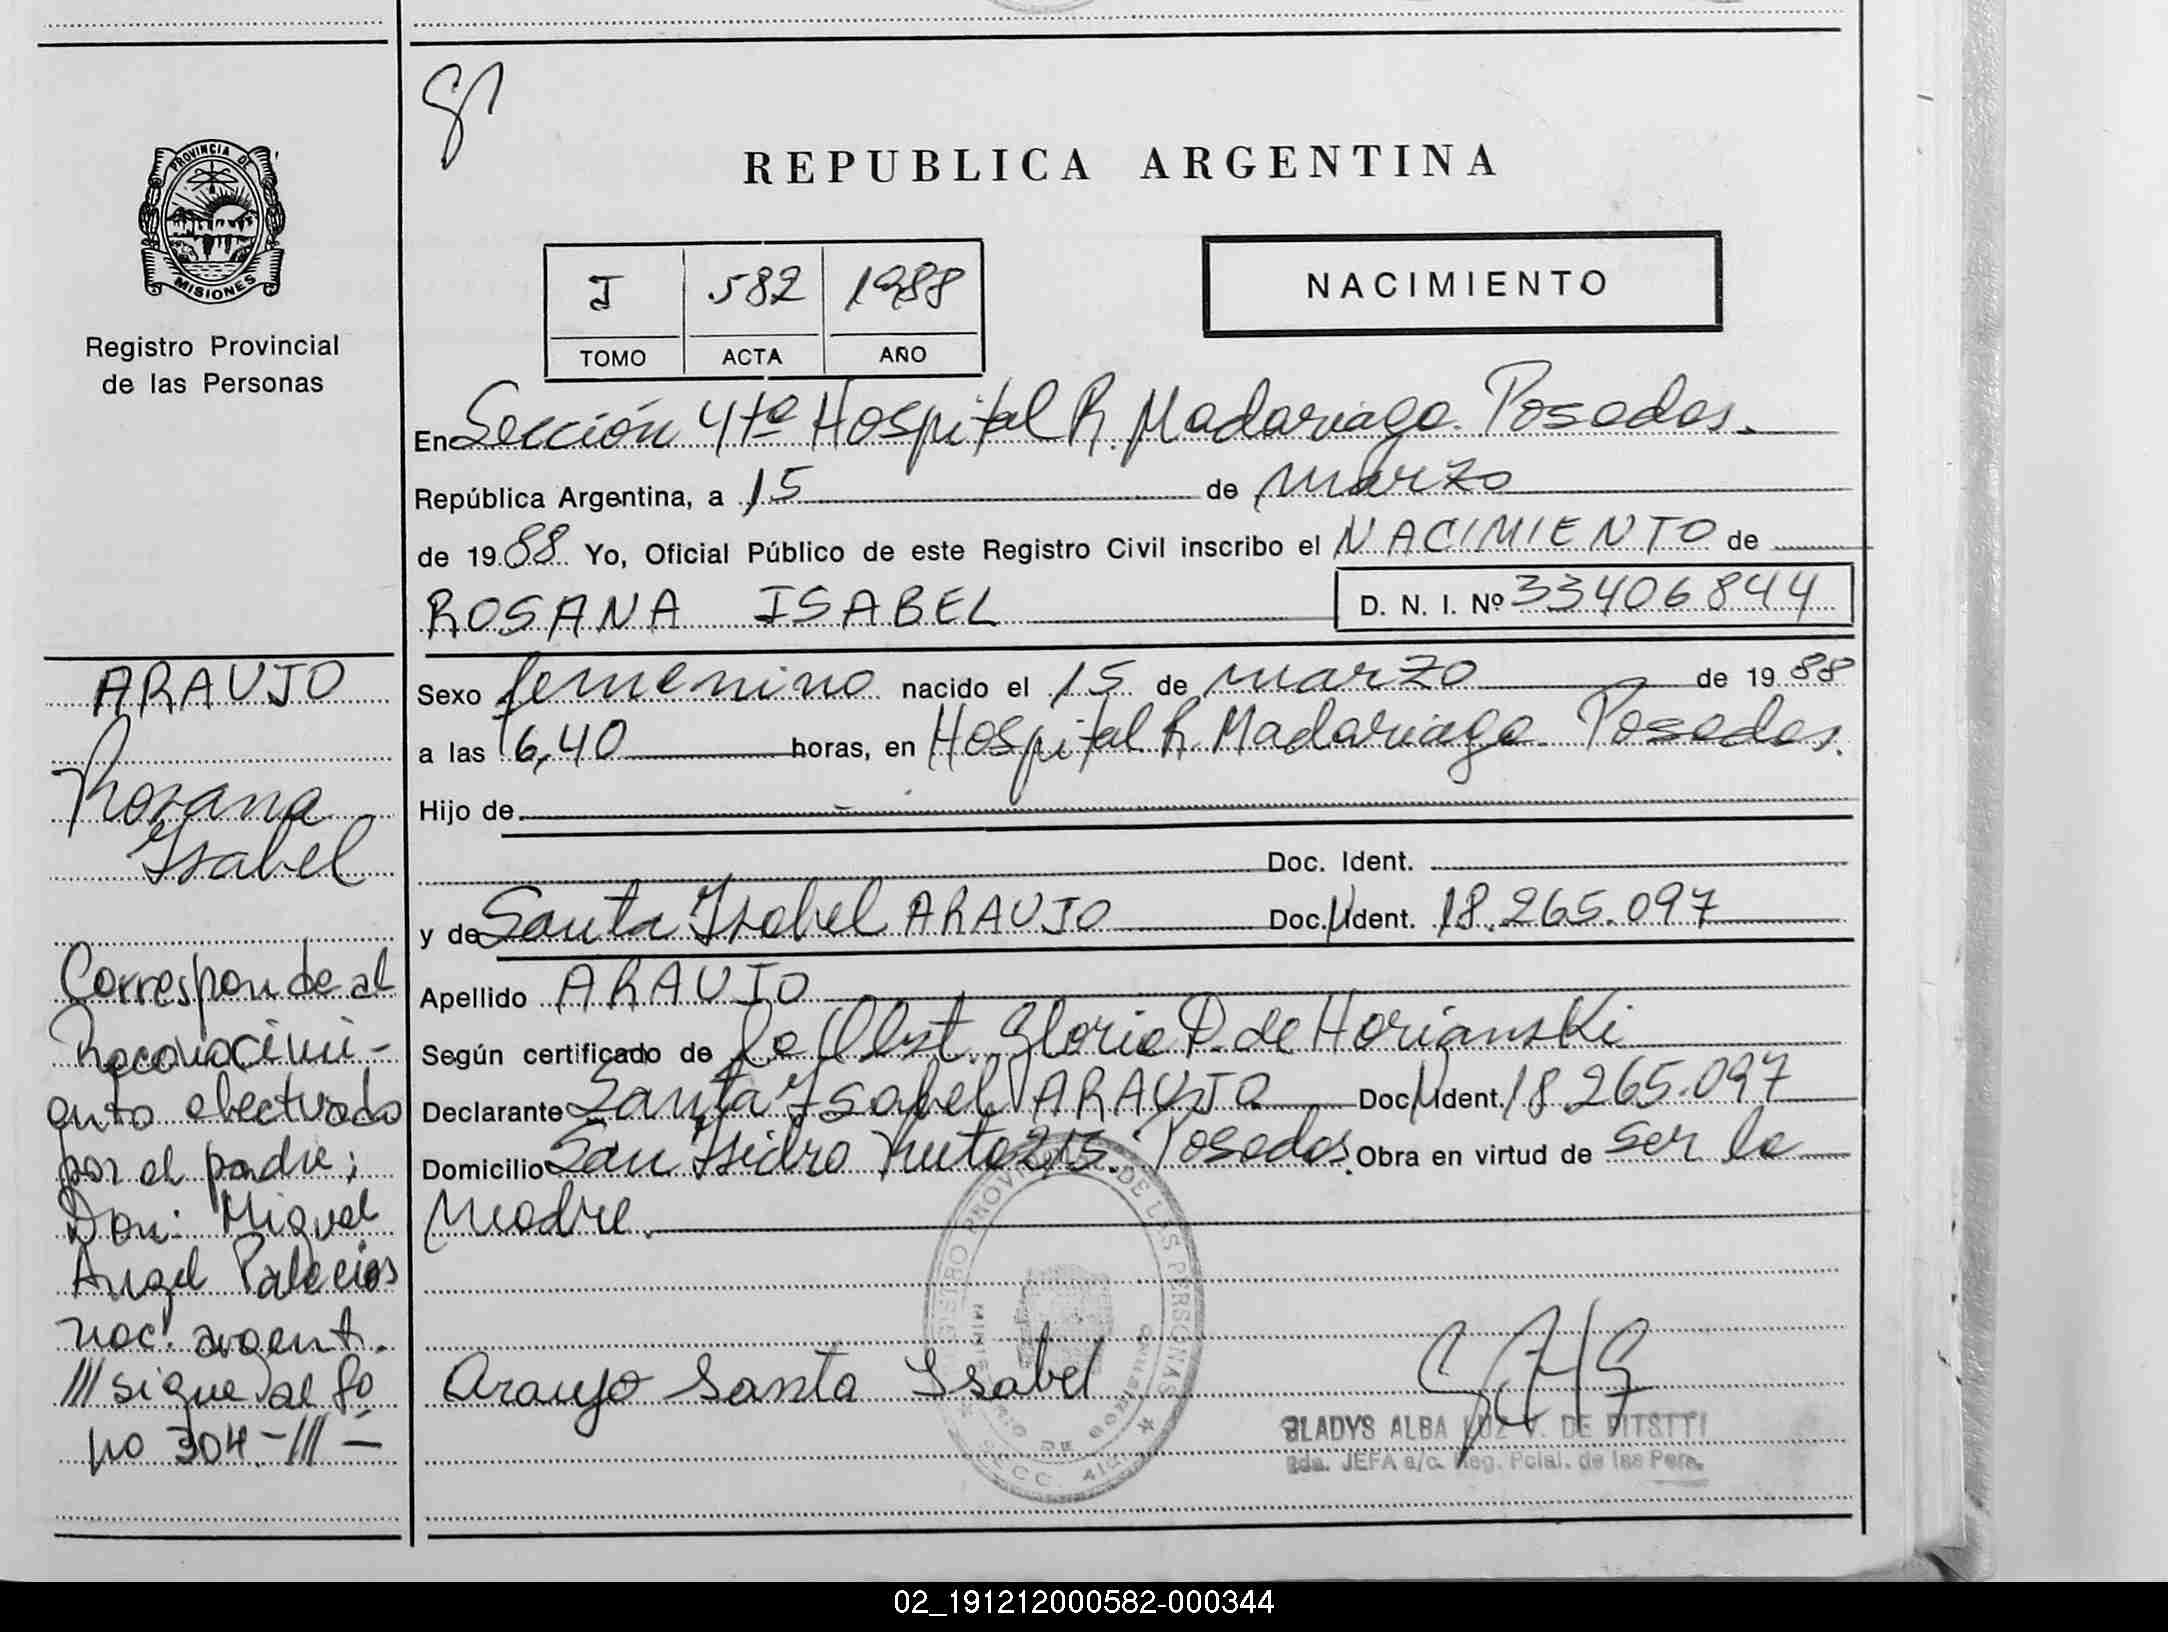 PROVINCIA DE
MISIONES
Registro Provincial
de las Personas
REPUBLICA ARGENTINA
I 582 1988
TOMO ACTA AÑO
NACIMIENTO
En Sección 4ta Hospital R. Madariaga. Posadas.
República Argentina, a 15 de marzo
de 19 88 Yo, Oficial Público de este Registro Civil inscribo el NACIMIENTO de
ROSANA ISABEL D. N. I. Nº 33406844
Sexo femenino nacido el 15 de marzo de 19 88
a las 6,40 horas, en Hospital R. Madariaga. Posadas.
Hijo de
Doc. Ident.
y de Santa Isabel ARAUJO Doc. U Ident. 18.265.097
Apellido ARAUJO
Según certificado de la Obst. Gloria P. de Horianski
Declarante Santa Isabel ARAUJO Doc U Ident. 18.265.097
Domicilio San Isidro 215. Posadas. Obra en virtud de ser la
Madre.
Araujo Santa Isabel
GLADYS ALBA LUZ V. DE PITSTTI
JEFA a/c. Reg. Pcial. de las Pers.
ARAUJO
Rosana
Isabel
Corresponde al
Reconocimi-
ento efectuado
por el padre;
Don: Miguel
Angel Palacios
nac. argent.
/// sigue al fo
no 304.-///-
REGISTRO PROVINCIAL DE LAS PERSONAS
MINISTERIO DE GOBIERNO
02_191212000582-000344